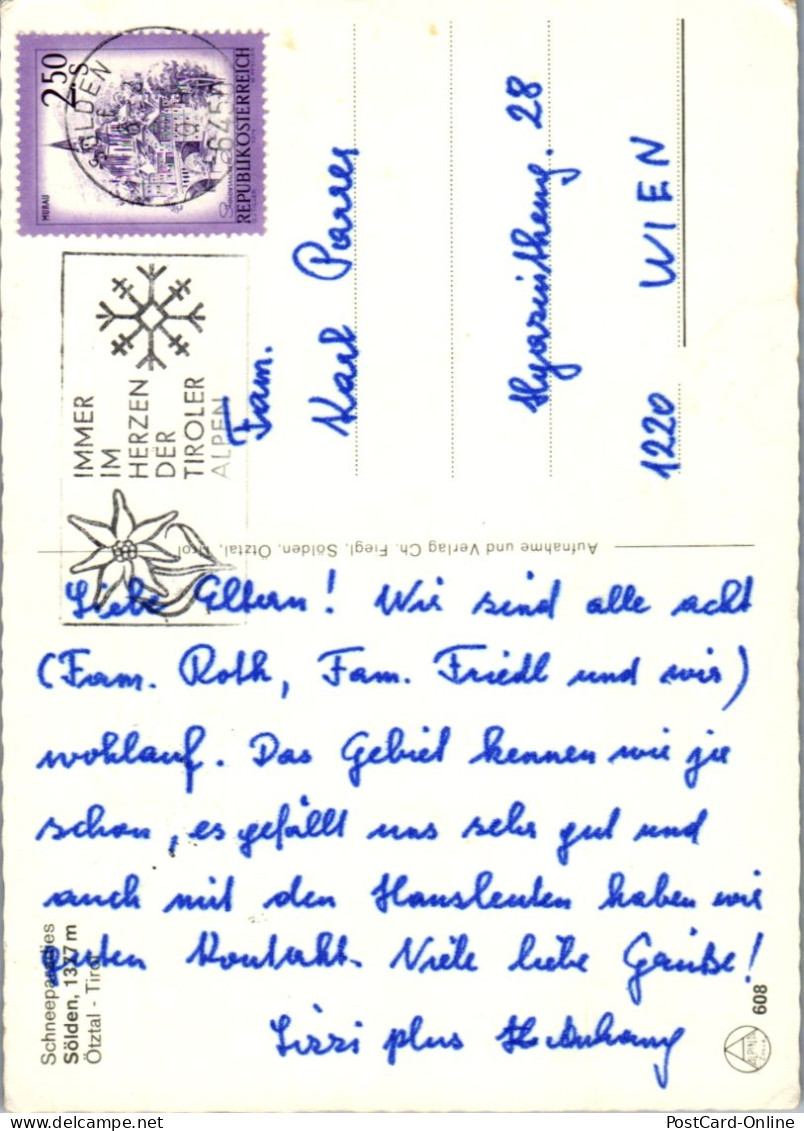 2.50 S
REPUBLIK ÖSTERREICH
MURAU
SÖLDEN
IMMER
IM
HERZEN
DER
TIROLER
ALPEN
Fam.
Karl
Hyazintheng. 28
1220 WIEN
Aufnahme und Verlag Ch. Fiegl, Sölden, Ötztal, Tirol
Liebe Eltern! Wir sind alle acht
(Fam. Roth, Fam. Friedl und wir)
wohlauf. Das Gebiet kennen wir ja
schon, es gefällt uns sehr gut und
auch mit den Hausleuten haben wir
guten Kontakt. Viele liebe Grüße!
Lizzi plus Anhang
Schneeparadies
Sölden, 1377 m
Ötztal - Tirol
608
PostCard-Online